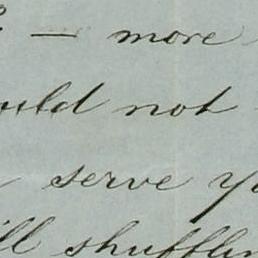 — more
uld not
serve y
ill shufflin